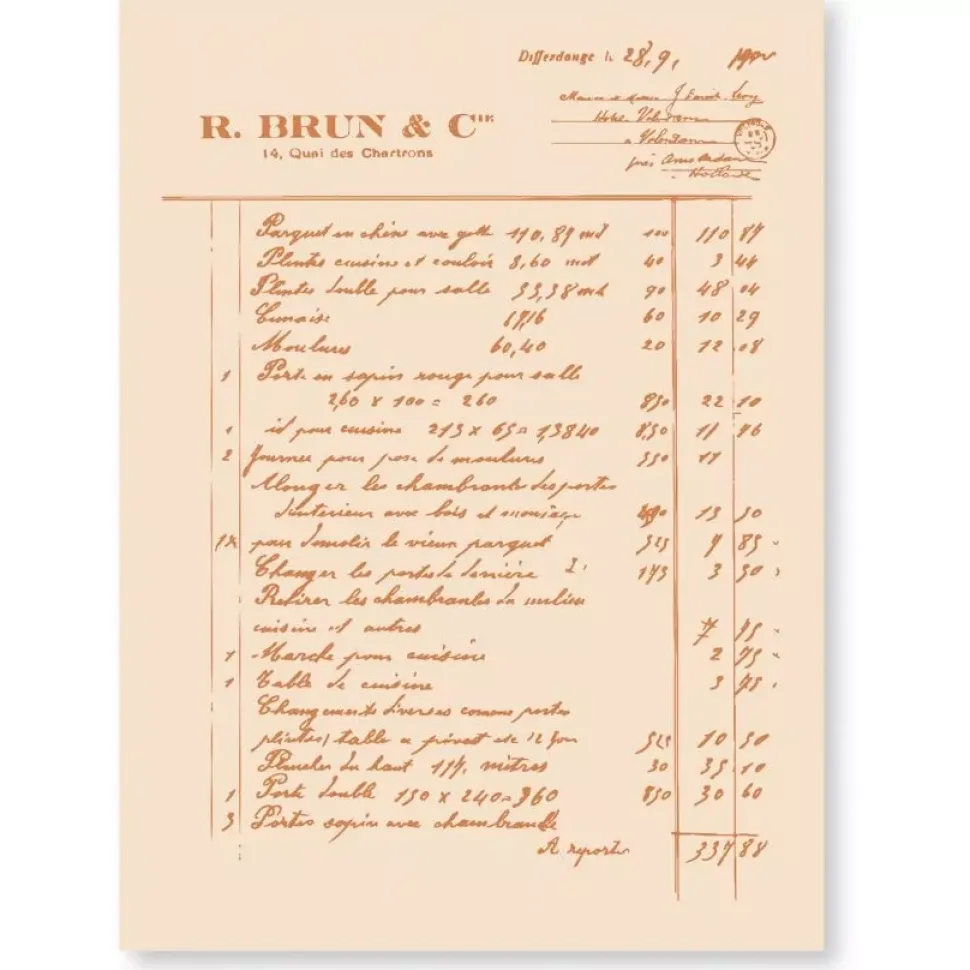 Differdange le 28, 9,
Hotel Volendam
a Volendam
près Amsterdam
Hollande
R. BRUN & Cie
14, Quai des Chartrons
Parquet en chêne avec 110,87 100 110 87
Plintes cuisine et couloir 8,60 40 3 44
Plintes double pour salle 53,38 90 48 04
Cimaise 17,16 60 10 29
Moulures 60,40 20 12 08
1 Porte en sapin rouge pour salle
2,60 x 100 = 260 850 22 10
1 id pour cuisine 213 x 65 = 1,3840 8,50 11 76
2 Journée pour pose de moulures 550 11
Alonger les chambrants des portes
d'interieur avec bois et 13 50
pour demolir le vieux parquet 525 7 85
Changer les portes de derrière 2 175 3 50
Retirer les chambranles du milieu
cuisine et autres 7 85
1 Marche pour cuisine 2 75
1 Table de cuisine 3 75
Changements diverses comme portes
plintes, table a pivot etc 2 Jour 525 10 50
Plancher du haut 117, mètres 30 35 10
1 Porte double 150 x 240 = 360 850 30 60
3 Portes sapin avec chambranle
A reporter 337 88